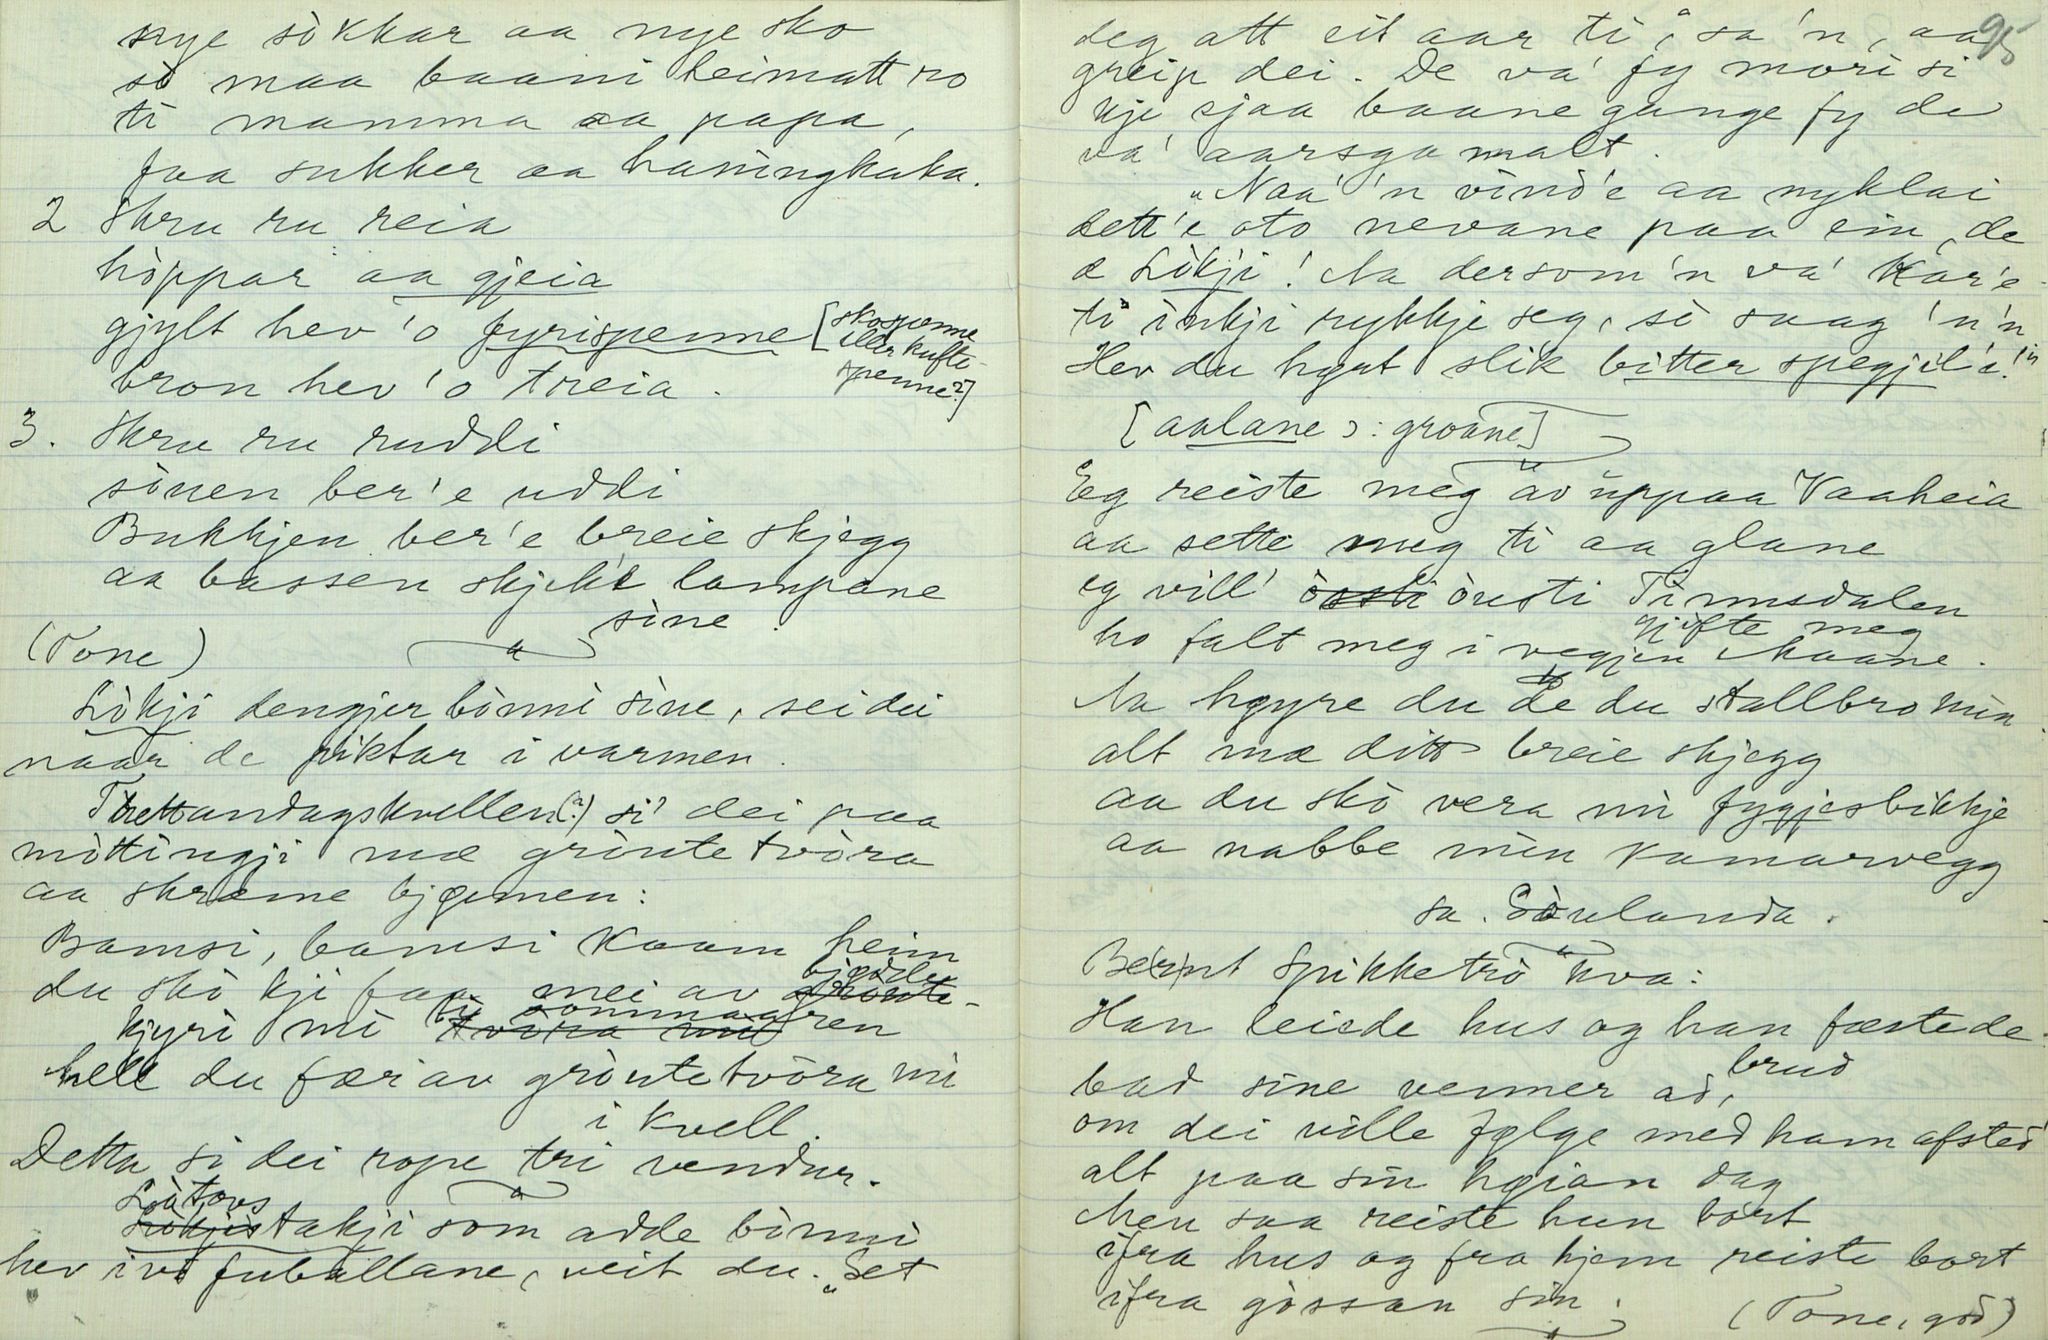 nye sòkkar aa nye sko
sò maa baani heimatt ro
ti mamma aa papa,
faa sukker aa haningkaka.
2 Skru ru reia
hòppar aa gjeia
gjylt hev 'o fyrispenne [skospenne
eller kufte-
spenne?]
bron hev 'o treia.
3. Skru ru ruddi
sònen ber'e uddi
Bukkjen ber'e breie skjegg
aa bassen skjekk lampane
sine.
(Tone)
Lòkji dengjer bònni sine, sei dei
naar de piktar i varmen.
Trettandagskvellen(?) si' dei paa
mòttingji mæ gròutetvòra
aa skræme bjønnen:
Bamsi, bamsi Kaam heim
du skò kji faa mei av bjødde
kjyri mi ti sommaaren
hell du fær av gròutetvòra mi
i kvell.
Detta si dei rope tri vendur.
Loùtovs
takji som adde bònni
hev ivi fuballane, veit du. „Set
95
deg att eit aar ti", sa 'n, aa
greip dei. De va' fy mori si
kje sjaa baane gange fy de
va' aarsgamalt.
„Naa' 'n vind'e aa nyklai
dett'e oto nevane paa ein, de
æ Lòkji! Na dersom 'n va' Kar'e
ti inkji rykkje seg, sò saag 'n 'n
Hev du høyrt slik bitter spegjil'i!"
[aalane ɔ: groane]
Eg reiste meg av uppaa Vaaheia
aa sette meg ti aa glane
eg vill' òusti Tinnsdalen
gjifte meg
ho falt meg i vegjen Maane.
Na høyre du de du stallbro min
alt mæ ditt breie skjegg
aa du skò vera mi fygjesbikkje
aa nabbe min Kamarvegg
sa. Sòulanda.
Be(r)nt Spikketrò kva:
Han leiede hus og han fæstede
brud
bad sine venner ad,
om dei ville følge med ham afsted
alt paa sin høian dag
Men saa reiste hun bort
ifra hus og fra hjem reiste bort
ifra gòssan sin.
(Tone, god)